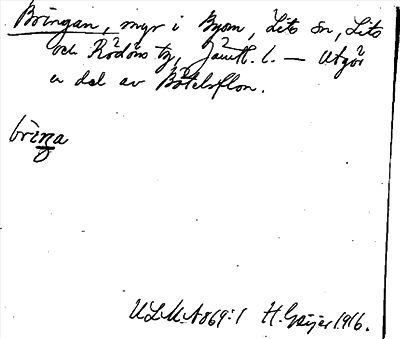 Bringan, myr i Byom, Lits sn, Lits
och Rödöns tg, Jämtl. l. — Utgör
en del av Bötelsflon.
brìŋa
U.L.M.A 869:1 H. Geijer 1916.